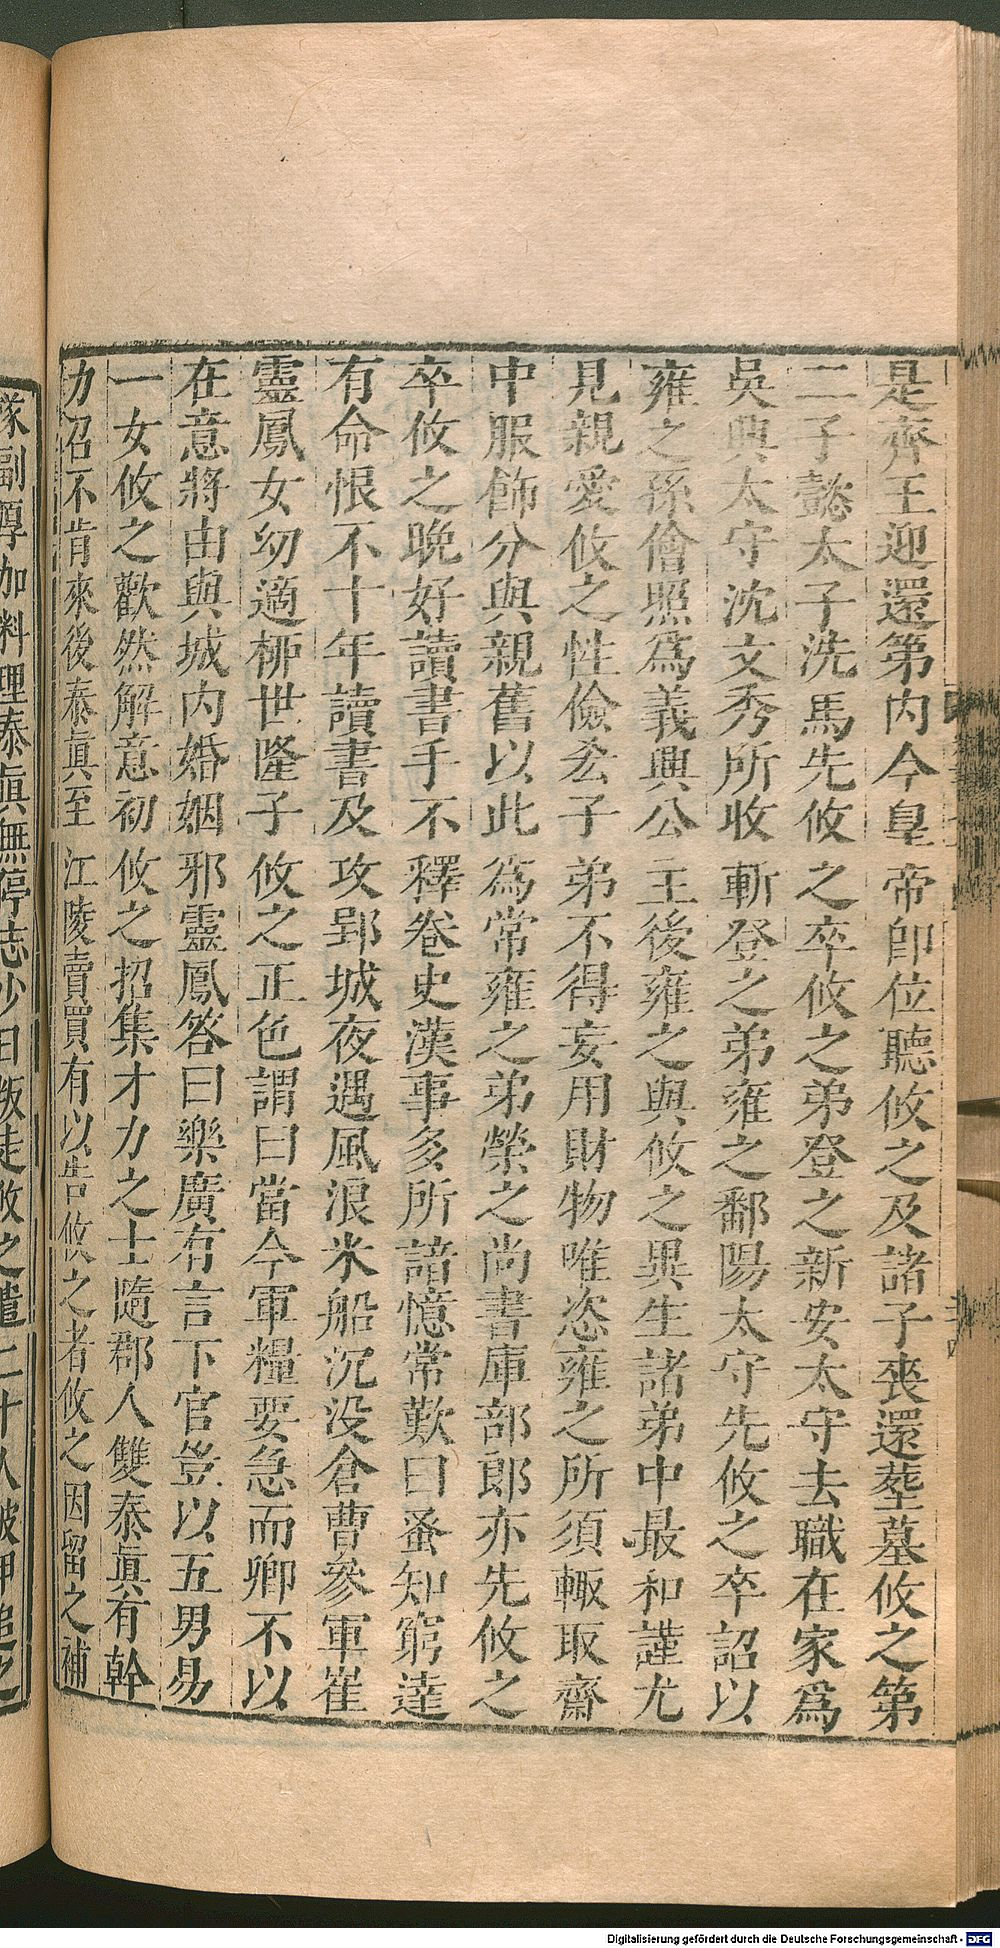 是齊王迎還第内今皇帝卽位聽攸之及諸子喪還塟墓攸之第
二子懿太子洗馬先攸之卒攸之弟登之新安太守去職在家爲
吳興太守沈文秀所收斬登之弟雍之鄱陽太守先攸之卒詔以
雍之孫僧照爲義興公主後雍之與攸之異生諸弟中最和謹尤
見親愛攸之性儉吝子弟不得妄用財物唯恣雍之所須輙取齋
中服飾分與親舊以此爲常雍之弟榮之尚書庫部郎亦先攸之
卒攸之晚好讀書手不釋卷史漢事多所諳憶常歎曰蚤知窮達
有命恨不十年讀書及攻郢城夜遇風浪米船沉没倉曹參軍崔
靈鳳女㓜適栁世隆子攸之正色謂曰當今軍糧要急而卿不以
在意將由與城内婚姻邪靈鳳答曰樂廣有言下官豈以五男易
一女攸之歡然解意初攸之招集才力之士隨郡人雙泰眞有幹
力召不肯來後泰眞至江陵賣買有以告攸之者攸之因留之補
隊副厚加料理泰眞無停志少日叛走攸之遣二十人被甲追之
Digitalisierung gefördert durch die Deutsche Forschungsgemeinschaft - DFG